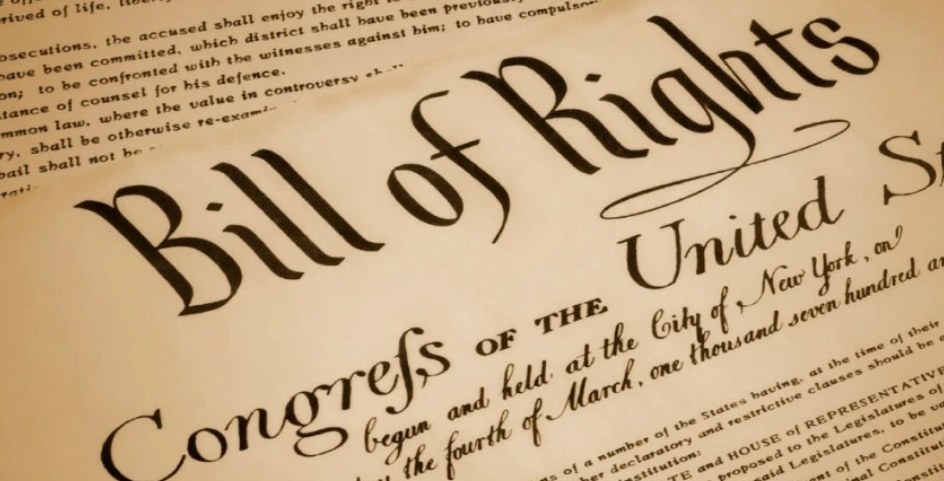 rived of life,
osecutions, the accused shall enjoy the right
have been committed, which district shall have been previous
on; to be confronted with the witnesses against him; to have compulso
tance of counsel for his defence.
mmon law, where the value in controversy
ry, shall be otherwise re-exam
bail shall not be
Bill of Rights
Congreſs OF THE United St
begun and held at the City of New York, on
the fourth of March, one thousand seven hundred an
s of a number of the States having, at the time of their
her declaratory and restrictive clauses should be a
nstitution:
TE and HOUSE of REPRESENTATIVE
proposed to the Legislatures of
said Legislatures, to be
nt of the Constitu
nal Constitut